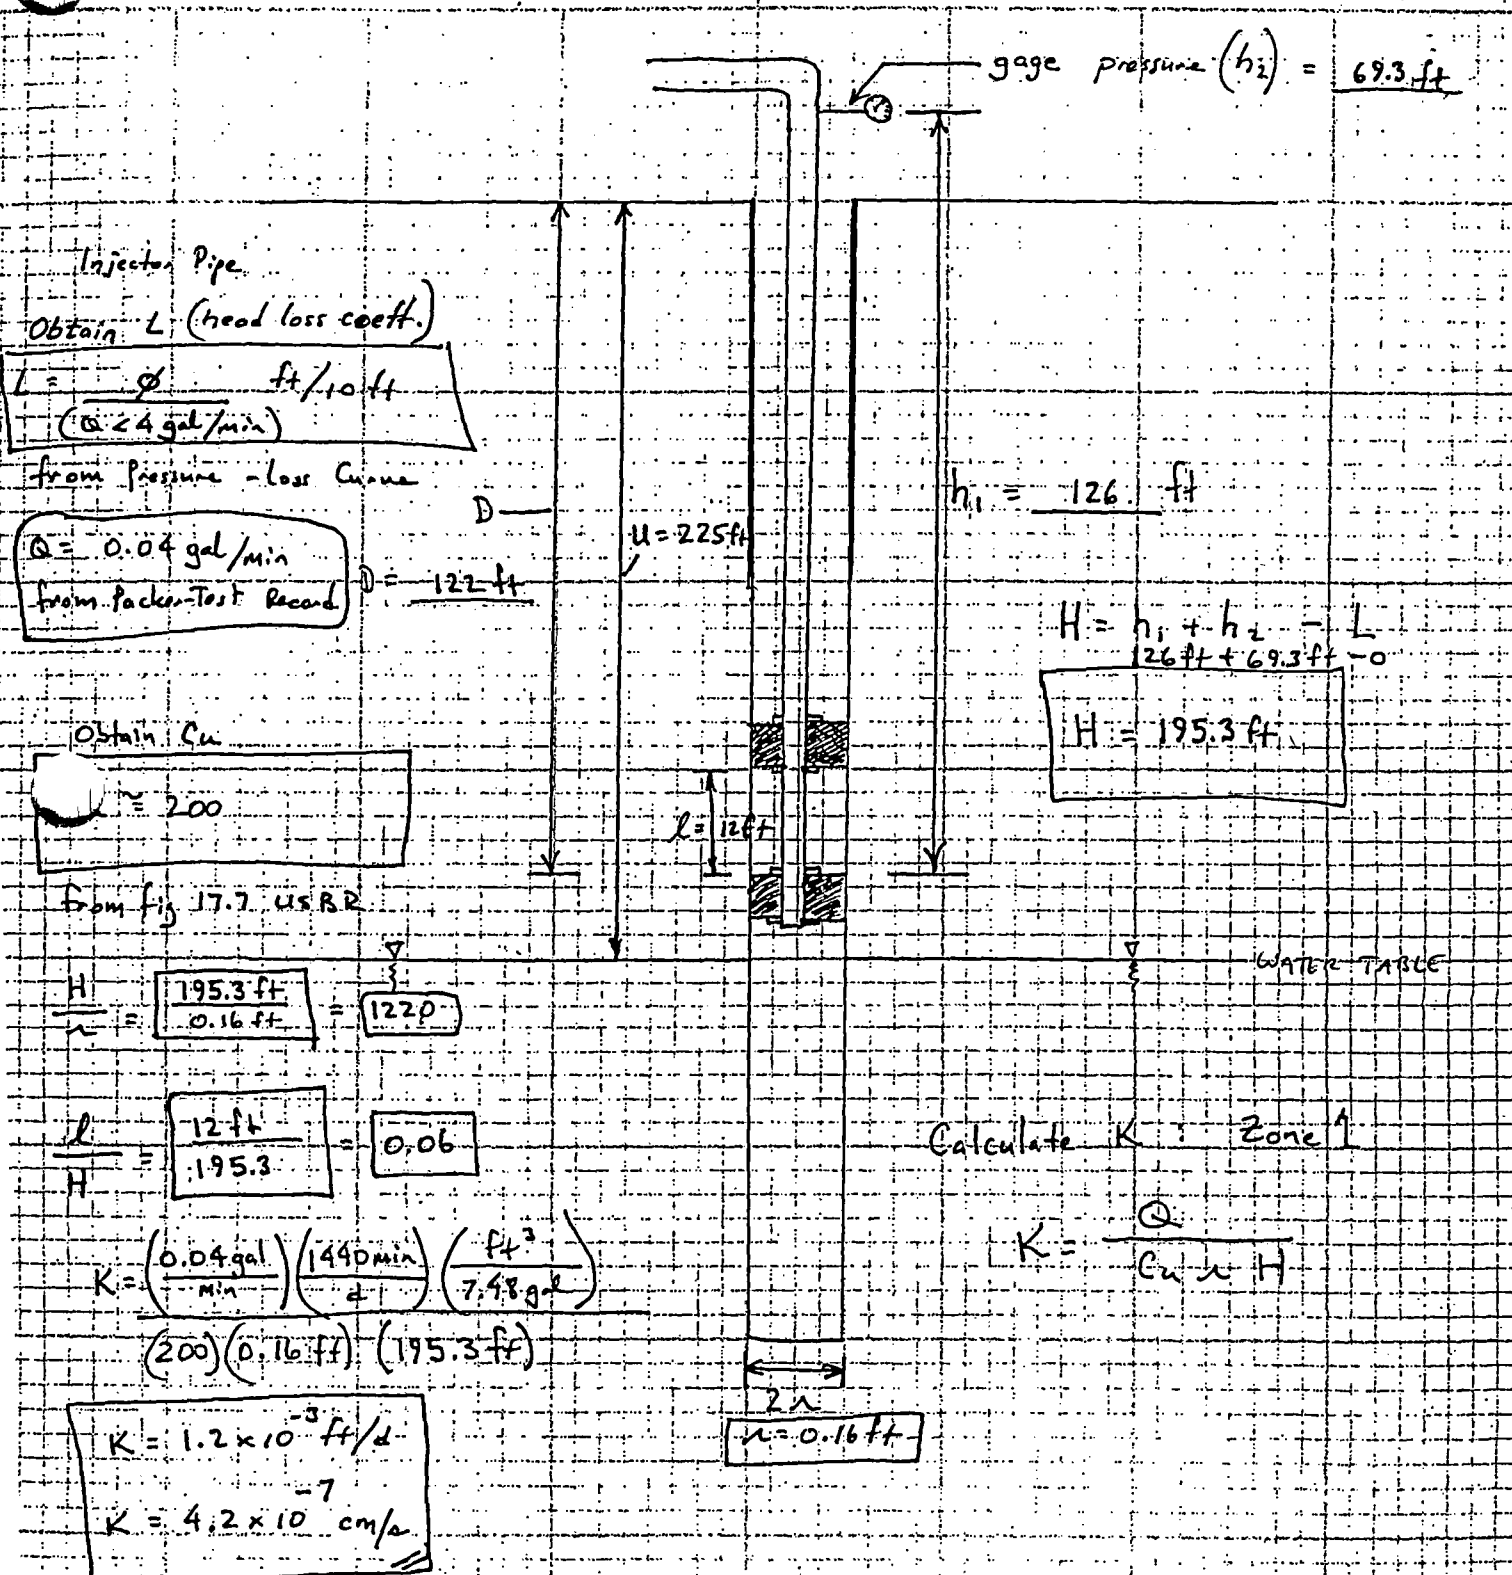 gage pressure (h₂) = 69.3 ft
Injector Pipe
Obtain L (head loss coeff.)
L = ϕ ft/10 ft
(Q < 4 gal/min)
from Pressure - Loss Curve
Q = 0.04 gal/min
from Packer-Test Record
D
D = 122 ft
U = 225 ft
h₁ = 126. ft
H = h₁ + h₂ - L
126 ft + 69.3 ft - 0
H = 195.3 ft
Obtain Cu
≈ 200
from fig 17.7 USBR
l = 12 ft
WATER TABLE
H/r = 195.3 ft / 0.16 ft = 1220
l/H = 12 ft / 195.3 = 0.06
Calculate K : Zone 1
K = Q / Cu r H
K = (0.04 gal/min) (1440 min/d) (ft³/7.48 gal)
(200) (0.16 ft) (195.3 ft)
K = 1.2 x 10⁻³ ft/d
K = 4.2 x 10⁻⁷ cm/s
2r
r = 0.16 ft